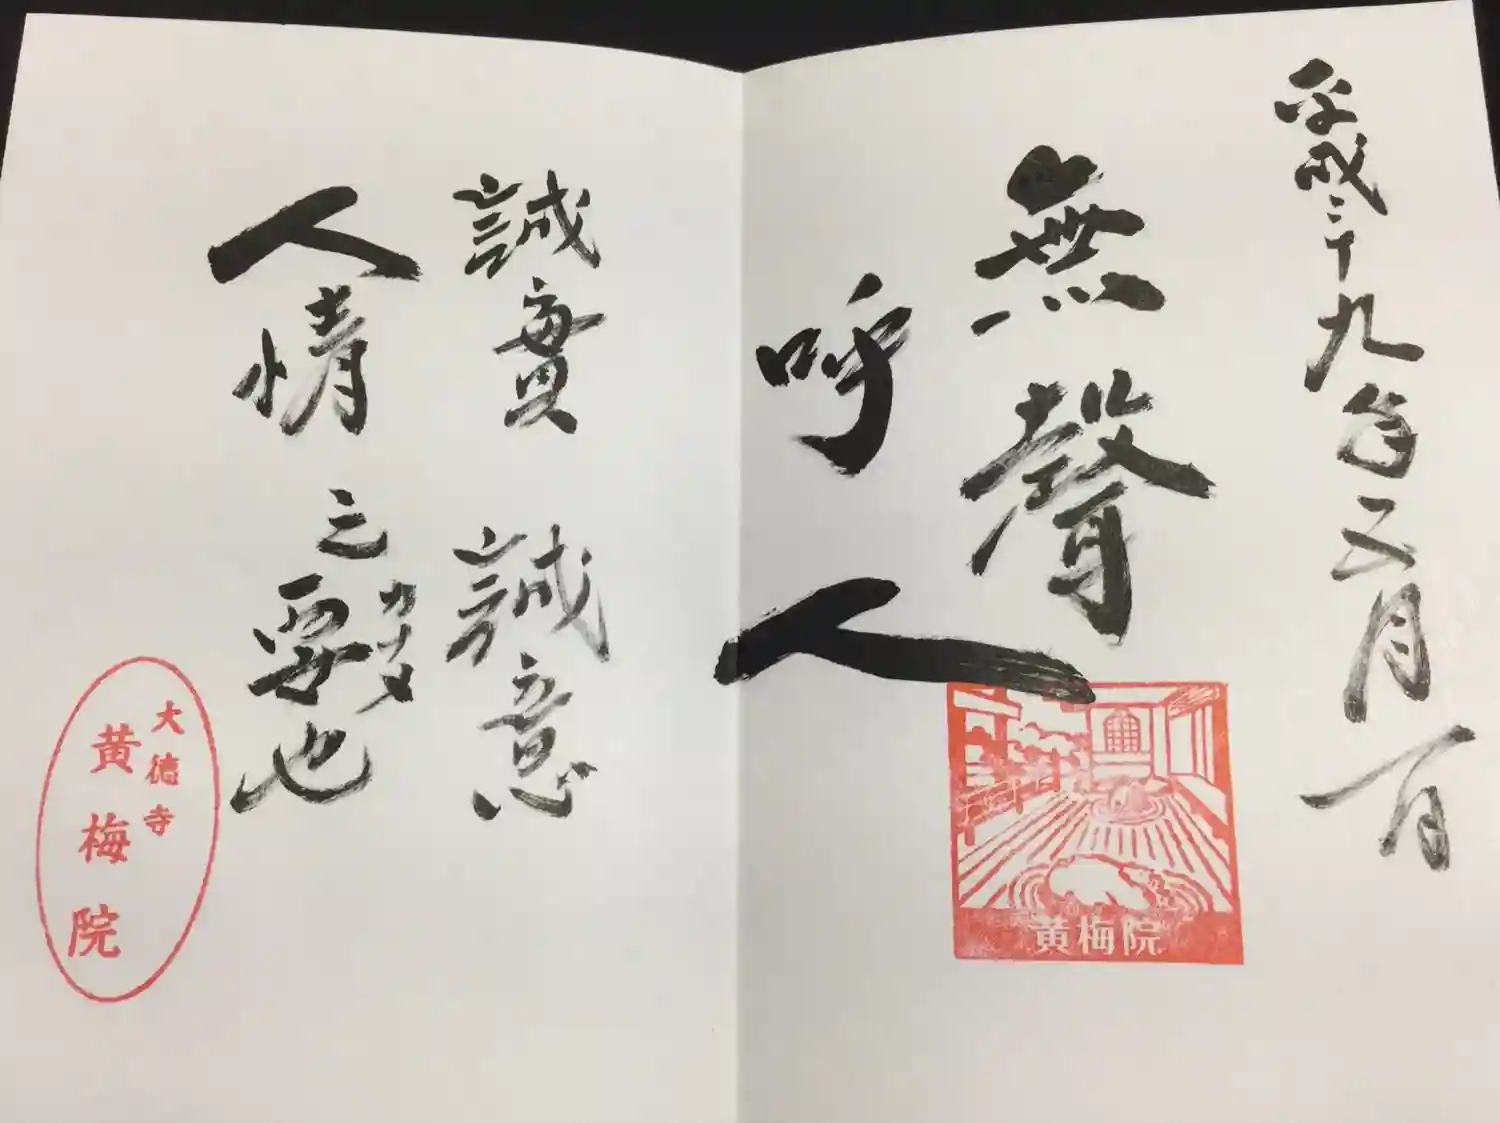 平成二十九年五月一日
無聲
呼
人
黄梅院
誠實 誠意
人情之要也
カナメ
大徳寺
黄梅院